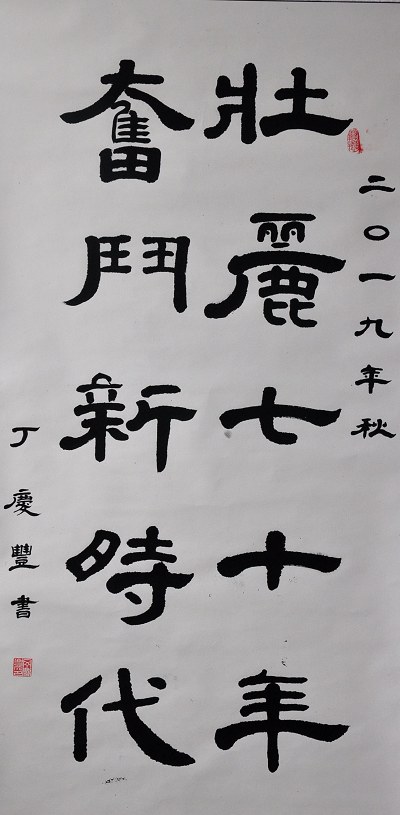 二〇一九年秋
壯麗七十年
奮鬥新時代
丁慶豐書